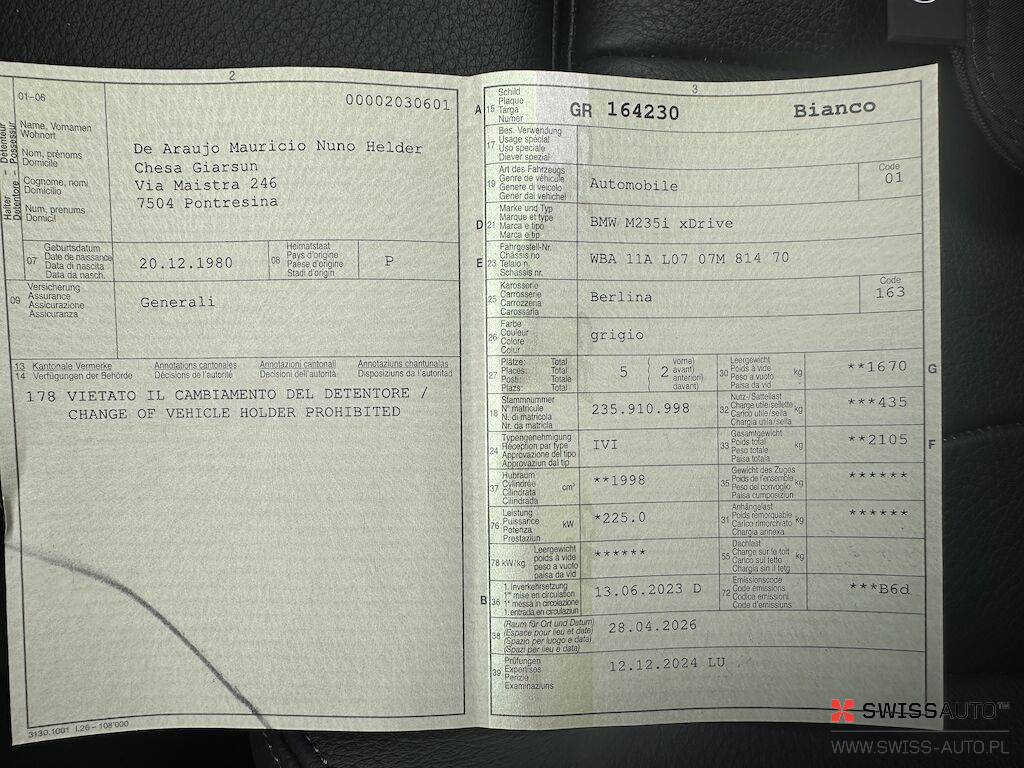 2
01-06
00002030601
Halter - Détenteur
Detentore - Possessur
Name, Vornamen
Wohnort
Nom, prénoms
Domicile
Cognome, nomi
Domicilio
Num, prenums
Domicil
De Araujo Mauricio Nuno Helder
Chesa Giarsun
Via Maistra 246
7504 Pontresina
07
Geburtsdatum
Date de naissance
Data di nascita
Data da nasch.
20.12.1980
08
Heimatstaat
Pays d'origine
Paese d'origine
Stadi d'origin
P
09
Versicherung
Assurance
Assicurazione
Assicuranza
Generali
13 Kantonale Vermerke Annotations cantonales Annotazioni cantonali Annotaziuns chantunalas
14 Verfügungen der Behörde Décisions de l'autorité Decisioni dell'autorità Disposiziuns da l'autoritad
178 VIETATO IL CAMBIAMENTO DEL DETENTORE /
CHANGE OF VEHICLE HOLDER PROHIBITED
3130.1001 I.26 - 108'000
3
A 15
Schild
Plaque
Targa
Numer
GR 164230 Bianco
17
Bes. Verwendung
Usage spécial
Uso speciale
Diever spezial
19
Art des Fahrzeugs
Genre de véhicule
Genere di veicolo
Gener dal vehichel
Automobile
Code
01
D 21
Marke und Typ
Marque et type
Marca e tipo
Marca e tip
BMW M235i xDrive
E 23
Fahrgestell-Nr.
Châssis no
Telaio n.
Schassis nr.
WBA 11A L07 07M 814 70
25
Karosserie
Carrosserie
Carrozzeria
Carossaria
Berlina
Code
163
26
Farbe
Couleur
Colore
Colur
grigio
27
Plätze: Total
Places: Total
Posti: Totale
Plazs: Total
5
( vorne)
( 2 avant)
( anteriori)
davant)
30
Leergewicht
Poids à vide
Peso a vuoto
Paisa da vid
kg
**1670
G
18
Stammnummer
N° matricule
N. di matricola
Nr. da matricla
235.910.998
32
Nutz-/Sattellast
Charge utile/sellette
Carico utile/sella
Chargia utila/sella
kg
***435
24
Typengenehmigung
Réception par type
Approvazione del tipo
Approvaziun dal tip
IVI
33
Gesamtgewicht
Poids total
Peso totale
Paisa totala
kg
**2105
F
37
Hubraum
Cylindrée
Cilindrata
Cilindrada
cm³
**1998
35
Gewicht des Zuges
Poids de l'ensemble
Peso del convoglio
Paisa cumposiziun
kg
******
76
Leistung
Puissance
Potenza
Prestaziun
kW
*225.0
31
Anhängelast
Poids remorquable
Carico rimorchiato
Chargia annexa
kg
******
78 kW/kg
Leergewicht
poids à vide
peso a vuoto
paisa da vid
******
55
Dachlast
Charge sur le toit
Carico sul tetto
Chargia sin il tetg
kg
B 36
1. Inverkehrsetzung
1re mise en circulation
1a messa in circolazione
1. entrada en circulaziun
13.06.2023 D
72
Emissionscode
Code émissions
Codice emissioni
Code d'emissiuns
***B6d
38
(Raum für Ort und Datum)
(Espace pour lieu et date)
(Spazio per luogo e data)
(Spazi per lieu e data)
28.04.2026
39
Prüfungen
Expertises
Perizie
Examinaziuns
12.12.2024 LU
SWISSAUTO™
WWW.SWISS-AUTO.PL